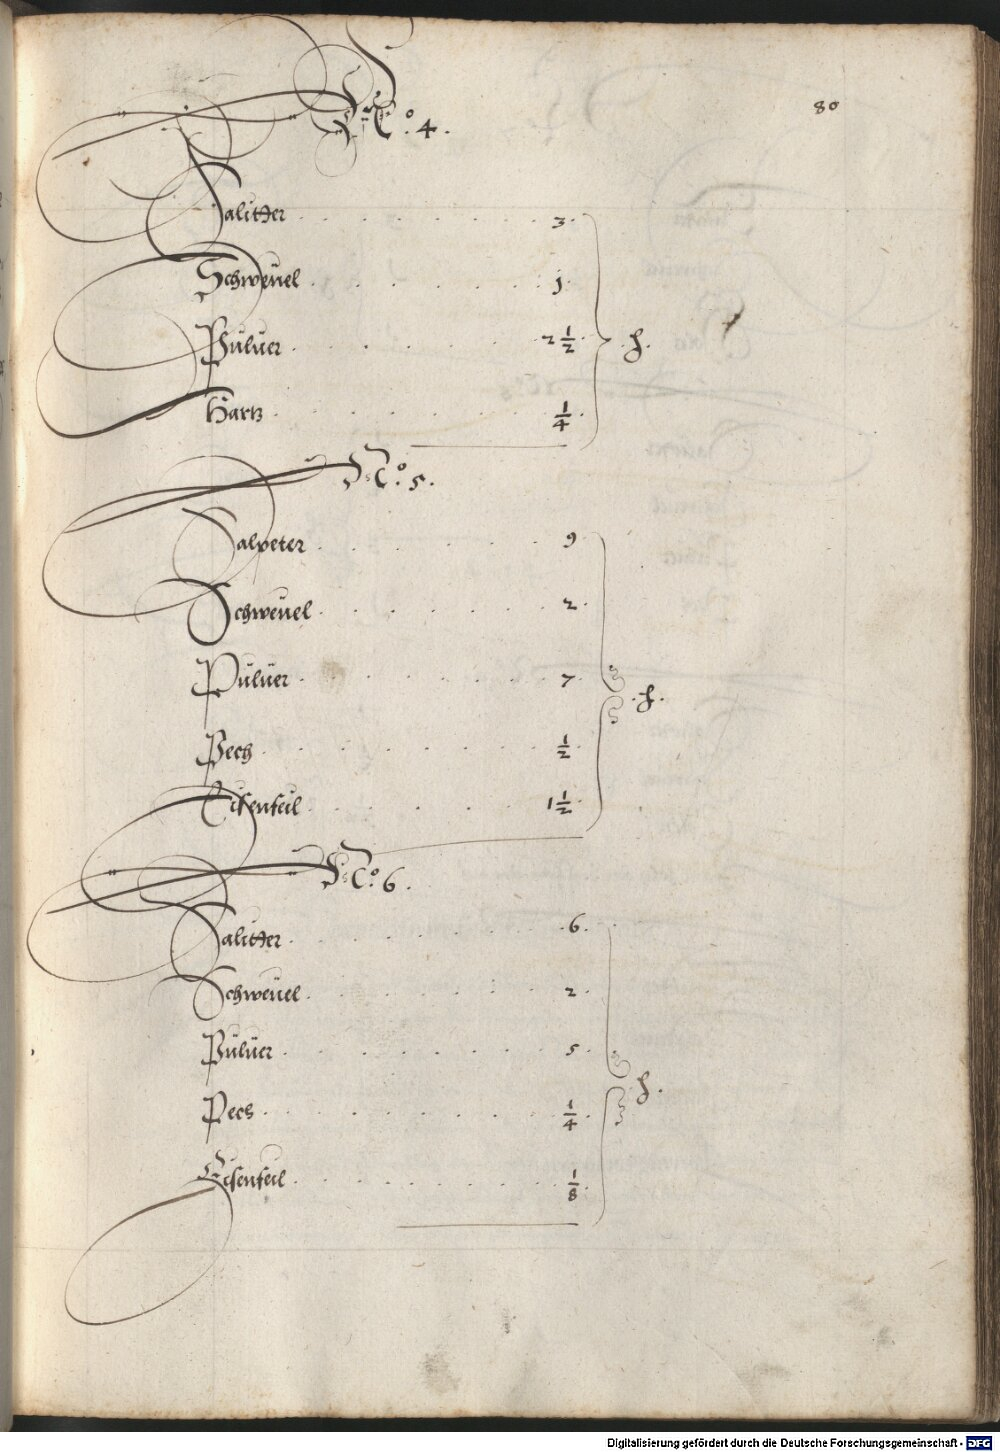 80
No. 4.
Salitter 3.
Schweüel 1.
Pulüer 2 1/2. ℔.
Hartz 1/4.
No. 5.
Salpeter 9
Schweüel 2.
Pulüer 7. ℔.
Pech 1/2.
Eisenfeil 1 1/2.
No. 6.
Salitter 6.
Schweüel 2.
Pulüer 5. ℔.
Pech 1/4.
Eisenfeil 1/8.
Digitalisierung gefördert durch die Deutsche Forschungsgemeinschaft - DFG